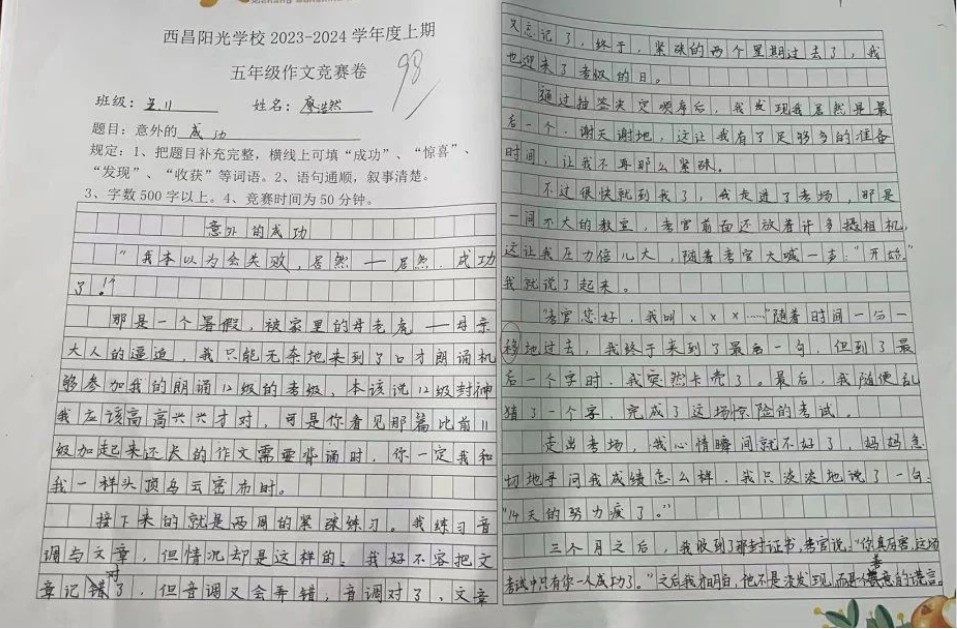 西昌阳光学校 2023-2024 学年度上期
五年级作文竞赛卷
98
班级：五11 姓名：廖浩然
题目：意外的 成功
规定：1、把题目补充完整，横线上可填“成功”、“惊喜”、
“发现”、“收获”等词语。2、语句通顺，叙事清楚。
3、字数 500 字以上。4、竞赛时间为 50 分钟。
意外的成功
“我本以为会失败，居然——居然，成功
了！”
那是一个暑假，被家里的母老虎——母亲
大人的逼迫，我只能无奈地来到了口才朗诵机
够参加我的朗诵12级的考级，本该说12级封神
我应该高高兴兴才对，可是你看见那篇比前11
级加起来还长的作文需要背诵时，你一定我和
我一样头顶乌云密布时。
接下来的就是两周的紧张练习。我练习音
调与文章，但情况却是这样的：我好不容把文
章记对了，但音调又会弄错，音调对了，文章
又忘记了，终于，紧张的两个星期过去了，我
也迎来了考级的日。
通过抽签决定顺序后，我发现我居然是最
后一个，谢天谢地，这让我有了足够多的准备
时间，让我不再那么紧张。
不过很快就到我了，我走进了考场，那是
一间不大的教室，考官前面还放着许多摄相机，
这让我压力倍儿大，随着考官大喊一声：“开始。”
我就说了起来。
“考官您好，我叫×××……”随着时间一分一
移地过去，我终于来到了最后一句，但到了最
后一个字时，我突然卡壳了。最后，我随便乱
猜了一个字，完成了这场惊险的考试。
走出考场，我心情瞬间就不好了，妈妈急
切地寻问我成绩怎么样，我只淡淡地说了一句：
“14天的努力废了。”
三个月之后，我收到了那封证书，考官说：“你真厉害，这场
考试中只有你一人成功了。”之后我才明白，他不是没发现，而是一个善意的谎言。